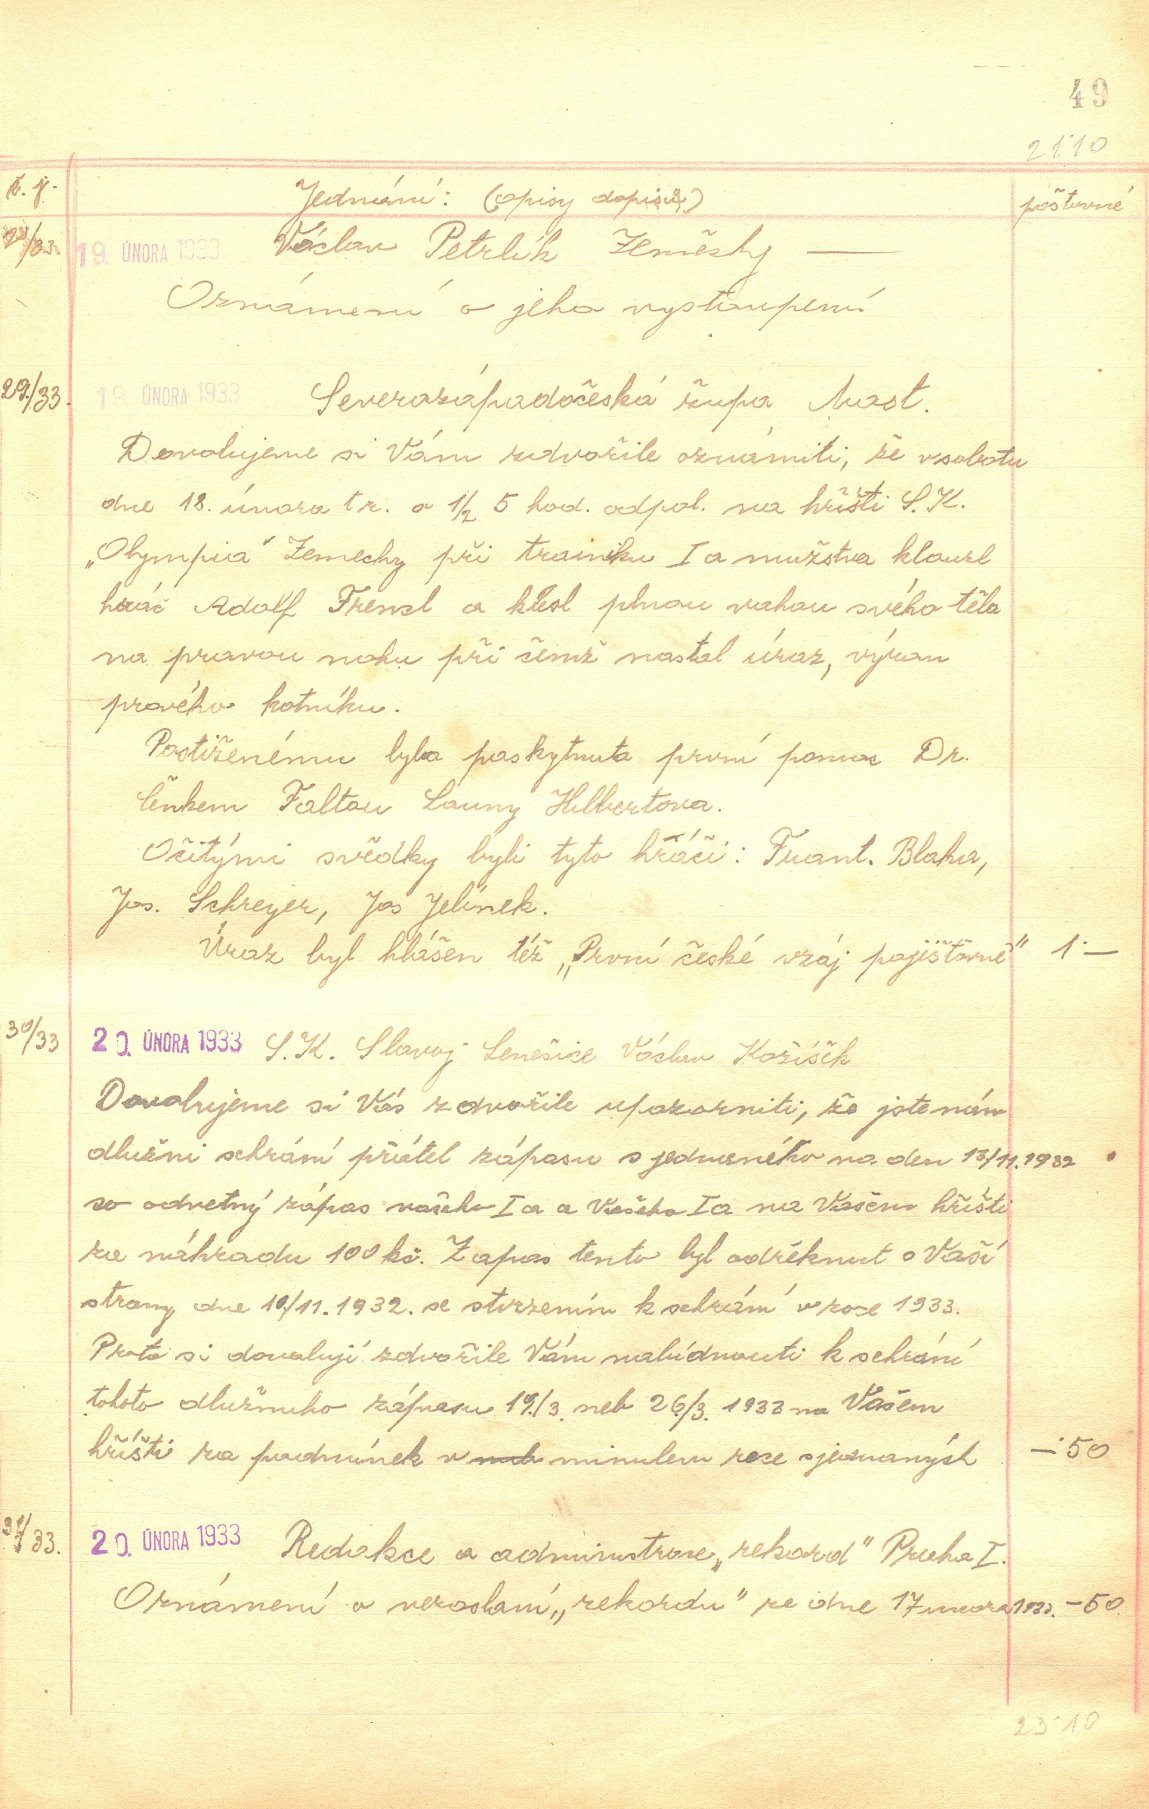 49
21·10
č. j. Jednání: (opisy dopisů) poštovné
28/33. 19. ÚNORA 1933 Václav Petrlík Zeměchy —
Oznámení o jeho vystoupení
29/33. 19. ÚNORA 1933 Severozápadočeská župa Most.
Dovolujeme si Vám zdvořile oznámiti, že v sobotu
dne 18. února t r. o 1/2 5 hod. odpol. na hřišti S. K.
„Olympia" Zemechy při trainiku I a mužstva klouzl
hráč Adolf Frenzl a klesl plnou vahou svého těla
na pravou nohu při čemž nastal úraz, výron
pravého kotníku.
Postiženému byla poskytnuta první pomoc Dr.
Čeňkem Faltou Louny Hilbertova.
Očitými svědky byli tyto hráči: Frant. Blaha,
Jos. Schreyer, Jos Jelínek.
Úraz byl hlášen též „První české vzáj pojišťovně" 1·—
30/33 20. ÚNORA 1933 S. K. Slavoj Lenešice Václav Kožíšek
Dovolujeme si Vás zdvořile upozorniti, že jste nám
dlužni sehrání přátel zápasu sjednaného na den 13/11. 1932
co odvetný zápas našeho I a a Vašeho I a na Vašem hřišti
za náhradu 100 kč. Zapas tento byl odřeknut s Vaší
strany dne 10/11. 1932. se stvrzením k sehrání v roce 1933.
Proto si dovoluji zdvořile Vám nabídnouti k sehrání
tohoto dlužního zápasu 19./3. neb 26/3. 1933 na Vašem
hřišti za podmínek v minulem roce sjednaných —·50
31/33. 20. ÚNORA 1933 Redakce a administrace „rekord" Praha I.
Oznámení o nezaslaní „rekordu" ze dne 17 unora 1933. –50
23·10